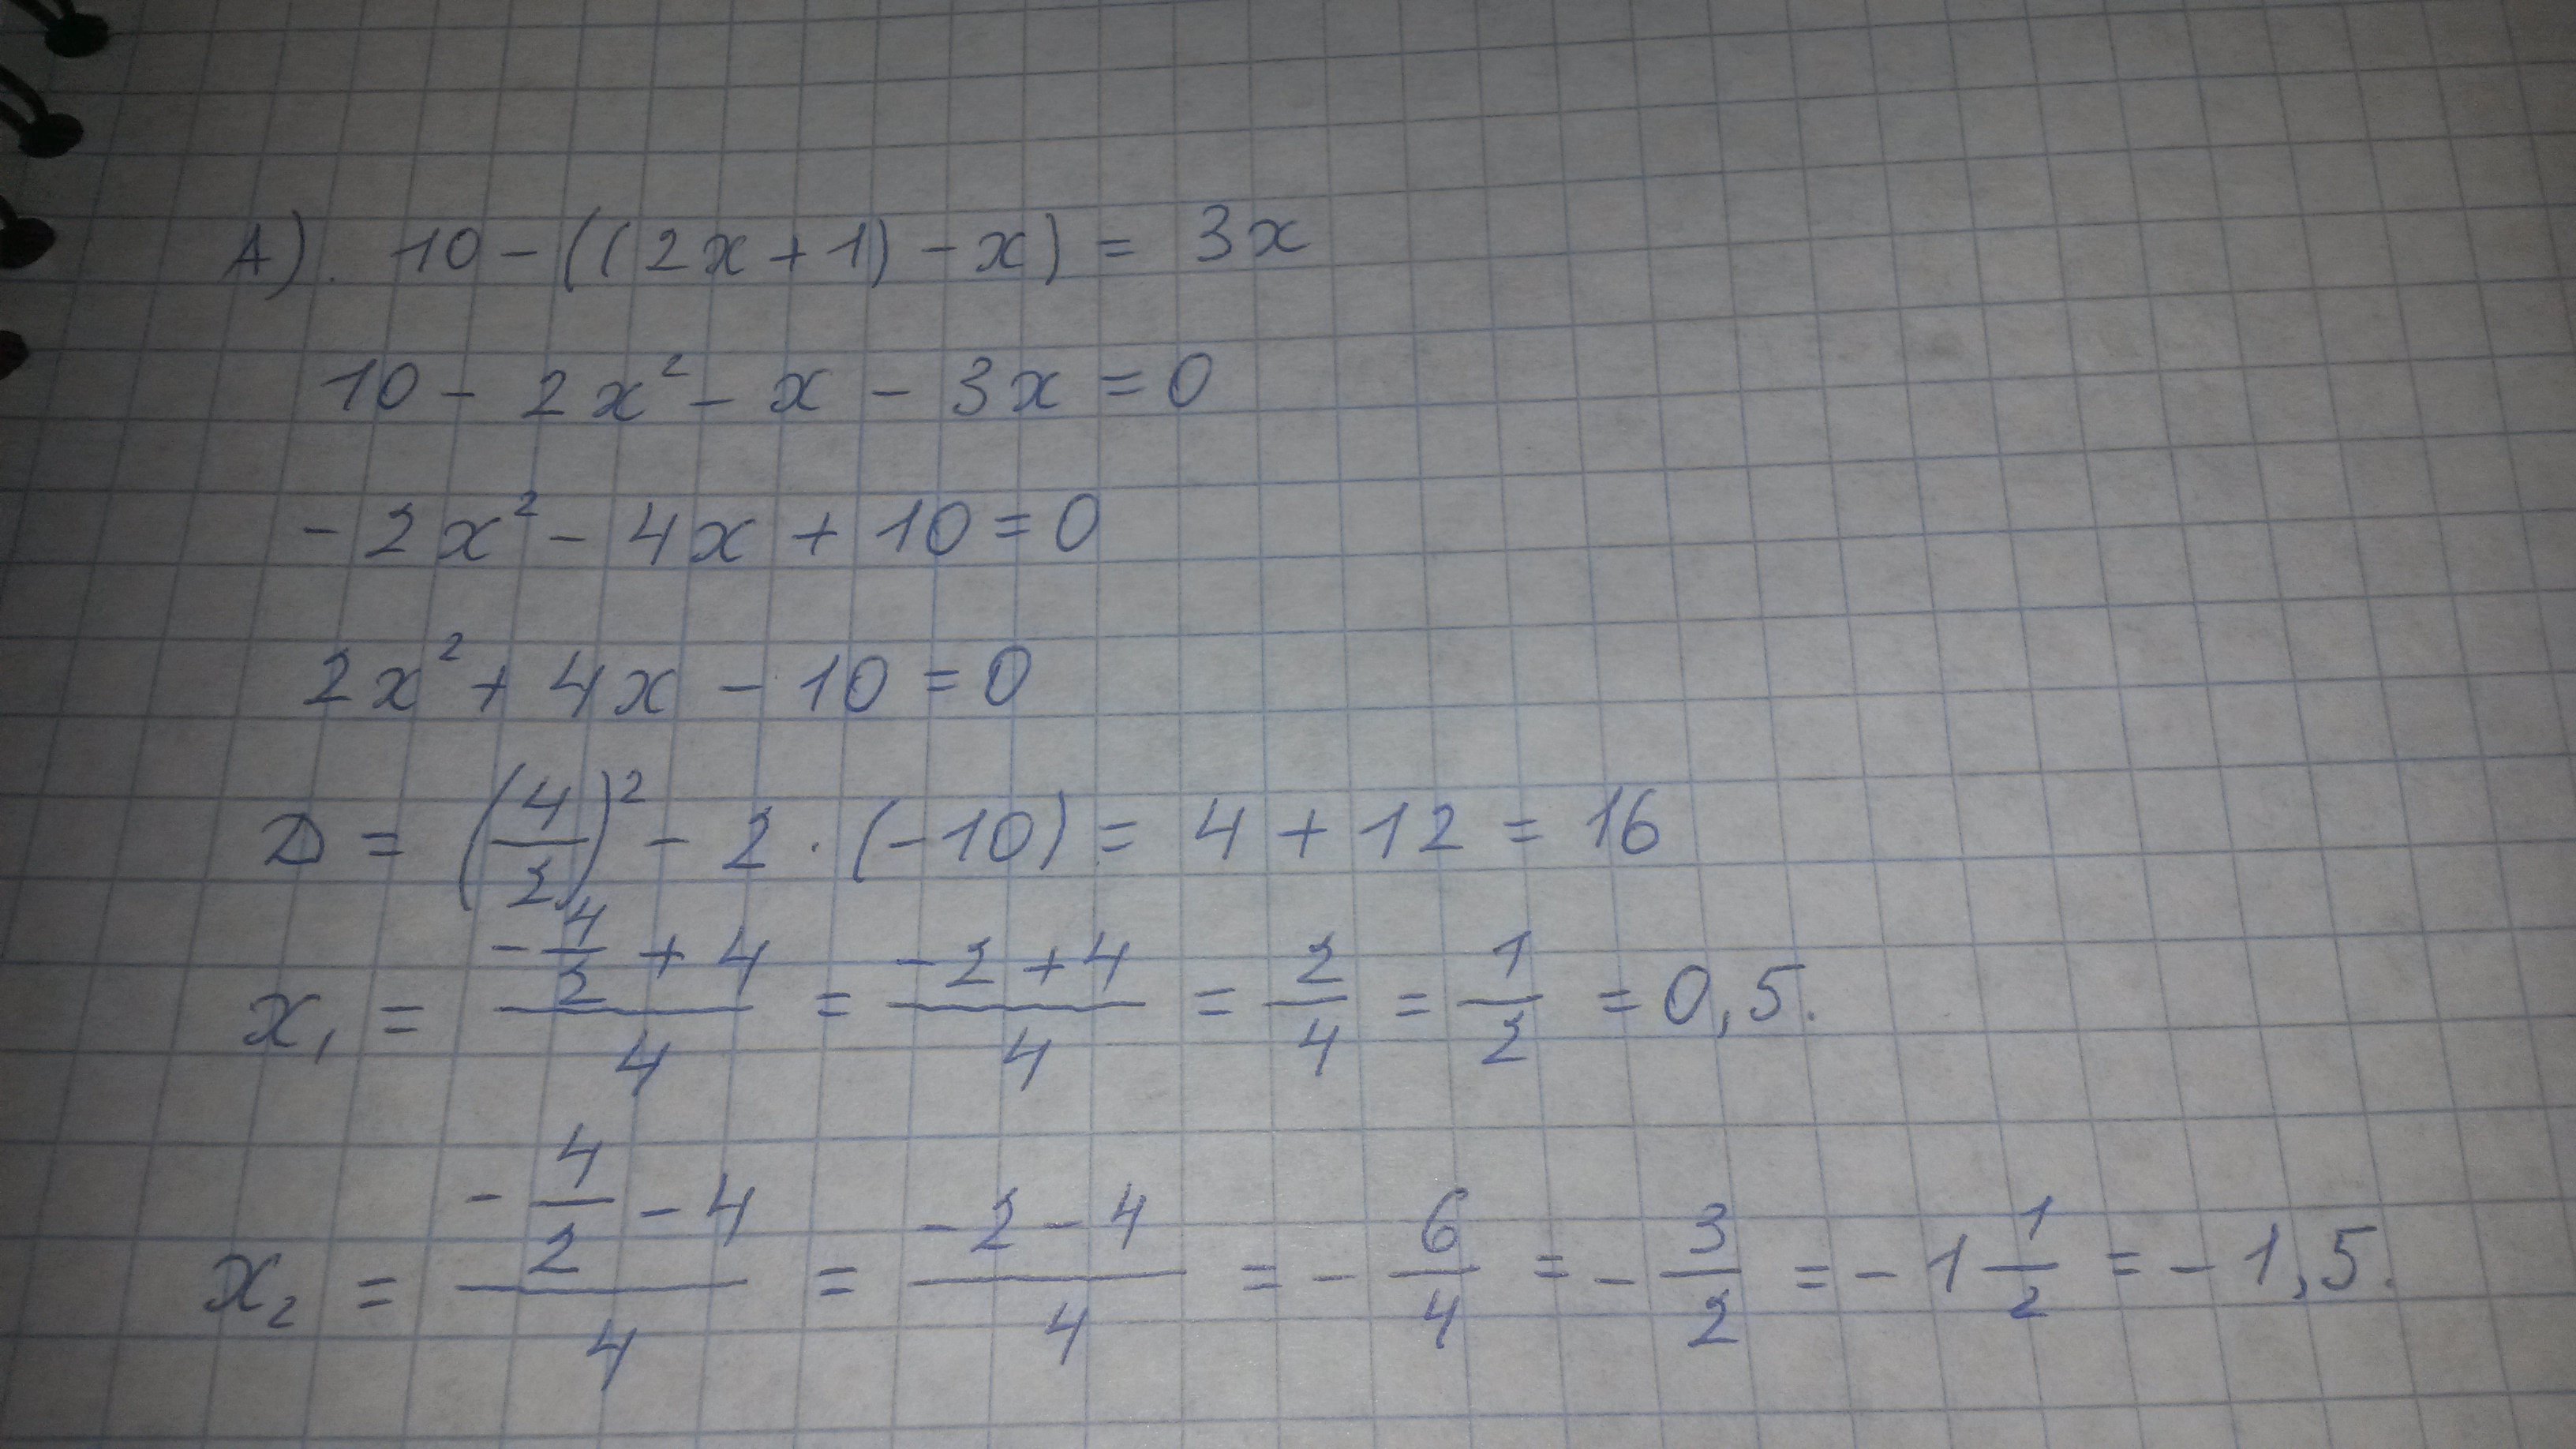 А). 10 - ((2x + 1) - x) = 3x
10 - 2x² - x - 3x = 0
- 2x² - 4x + 10 = 0
2x² + 4x - 10 = 0
D = (4/2)² - 2 · (-10) = 4 + 12 = 16
x₁ = (- 4/2 + 4)/4 = (-2 + 4)/4 = 2/4 = 1/2 = 0,5.
x₂ = (- 4/2 - 4)/4 = (-2 - 4)/4 = - 6/4 = - 3/2 = - 1 1/2 = - 1,5.